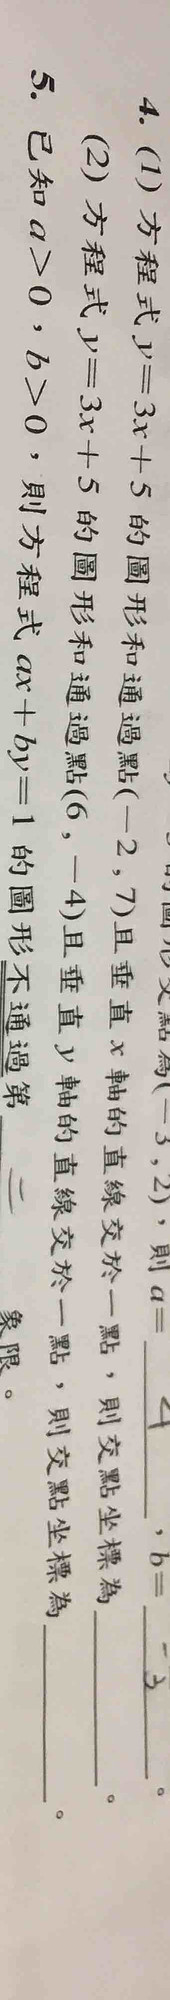 點為(－3 , 2)，則 a= 4 ，b= －3 。
4. (1) 方程式 y=3x＋5 的圖形和通過點(－2 , 7)且垂直 x 軸的直線交於一點，則交點坐標為 。
(2) 方程式 y=3x＋5 的圖形和通過點(6 , －4)且垂直 y 軸的直線交於一點，則交點坐標為 。
5. 已知 a＞0，b＞0，則方程式 ax＋by=1 的圖形不通過第 三 象限。